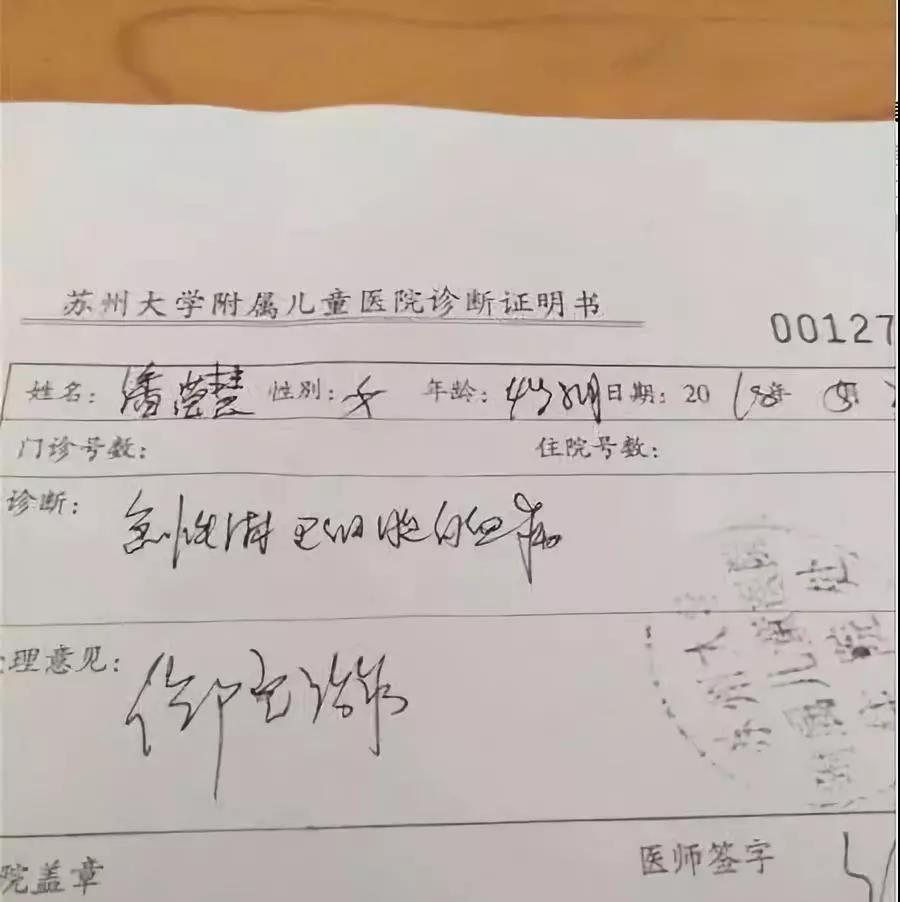 苏州大学附属儿童医院诊断证明书
00127
姓名: 潘 慧 性别: 女 年龄: 日期: 20 18年
门诊号数: 住院号数:
诊断: 急性淋巴细胞白血病
理意见: 住院治疗
院盖章 医师签字